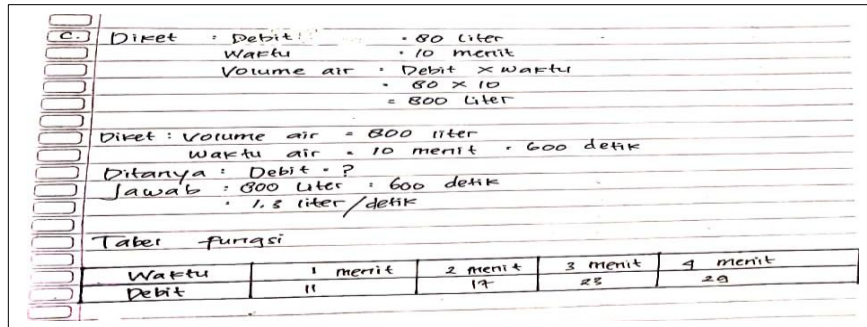 C. Diket : Debit = 80 liter
Waktu = 10 menit
Volume air = Debit x waktu
= 80 x 10
= 800 Liter
Diket : Volume air = 800 liter
Waktu air = 10 menit = 600 detik
Ditanya : Debit = ?
Jawab : 800 Liter : 600 detik
= 1,3 liter/detik
Tabel fungsi
Waktu 1 menit 2 menit 3 menit 4 menit
Debit 11 17 23 29